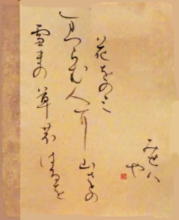 花をのミ
まつらむ人に山さとの
雪まの草のはるを
みせハ
や